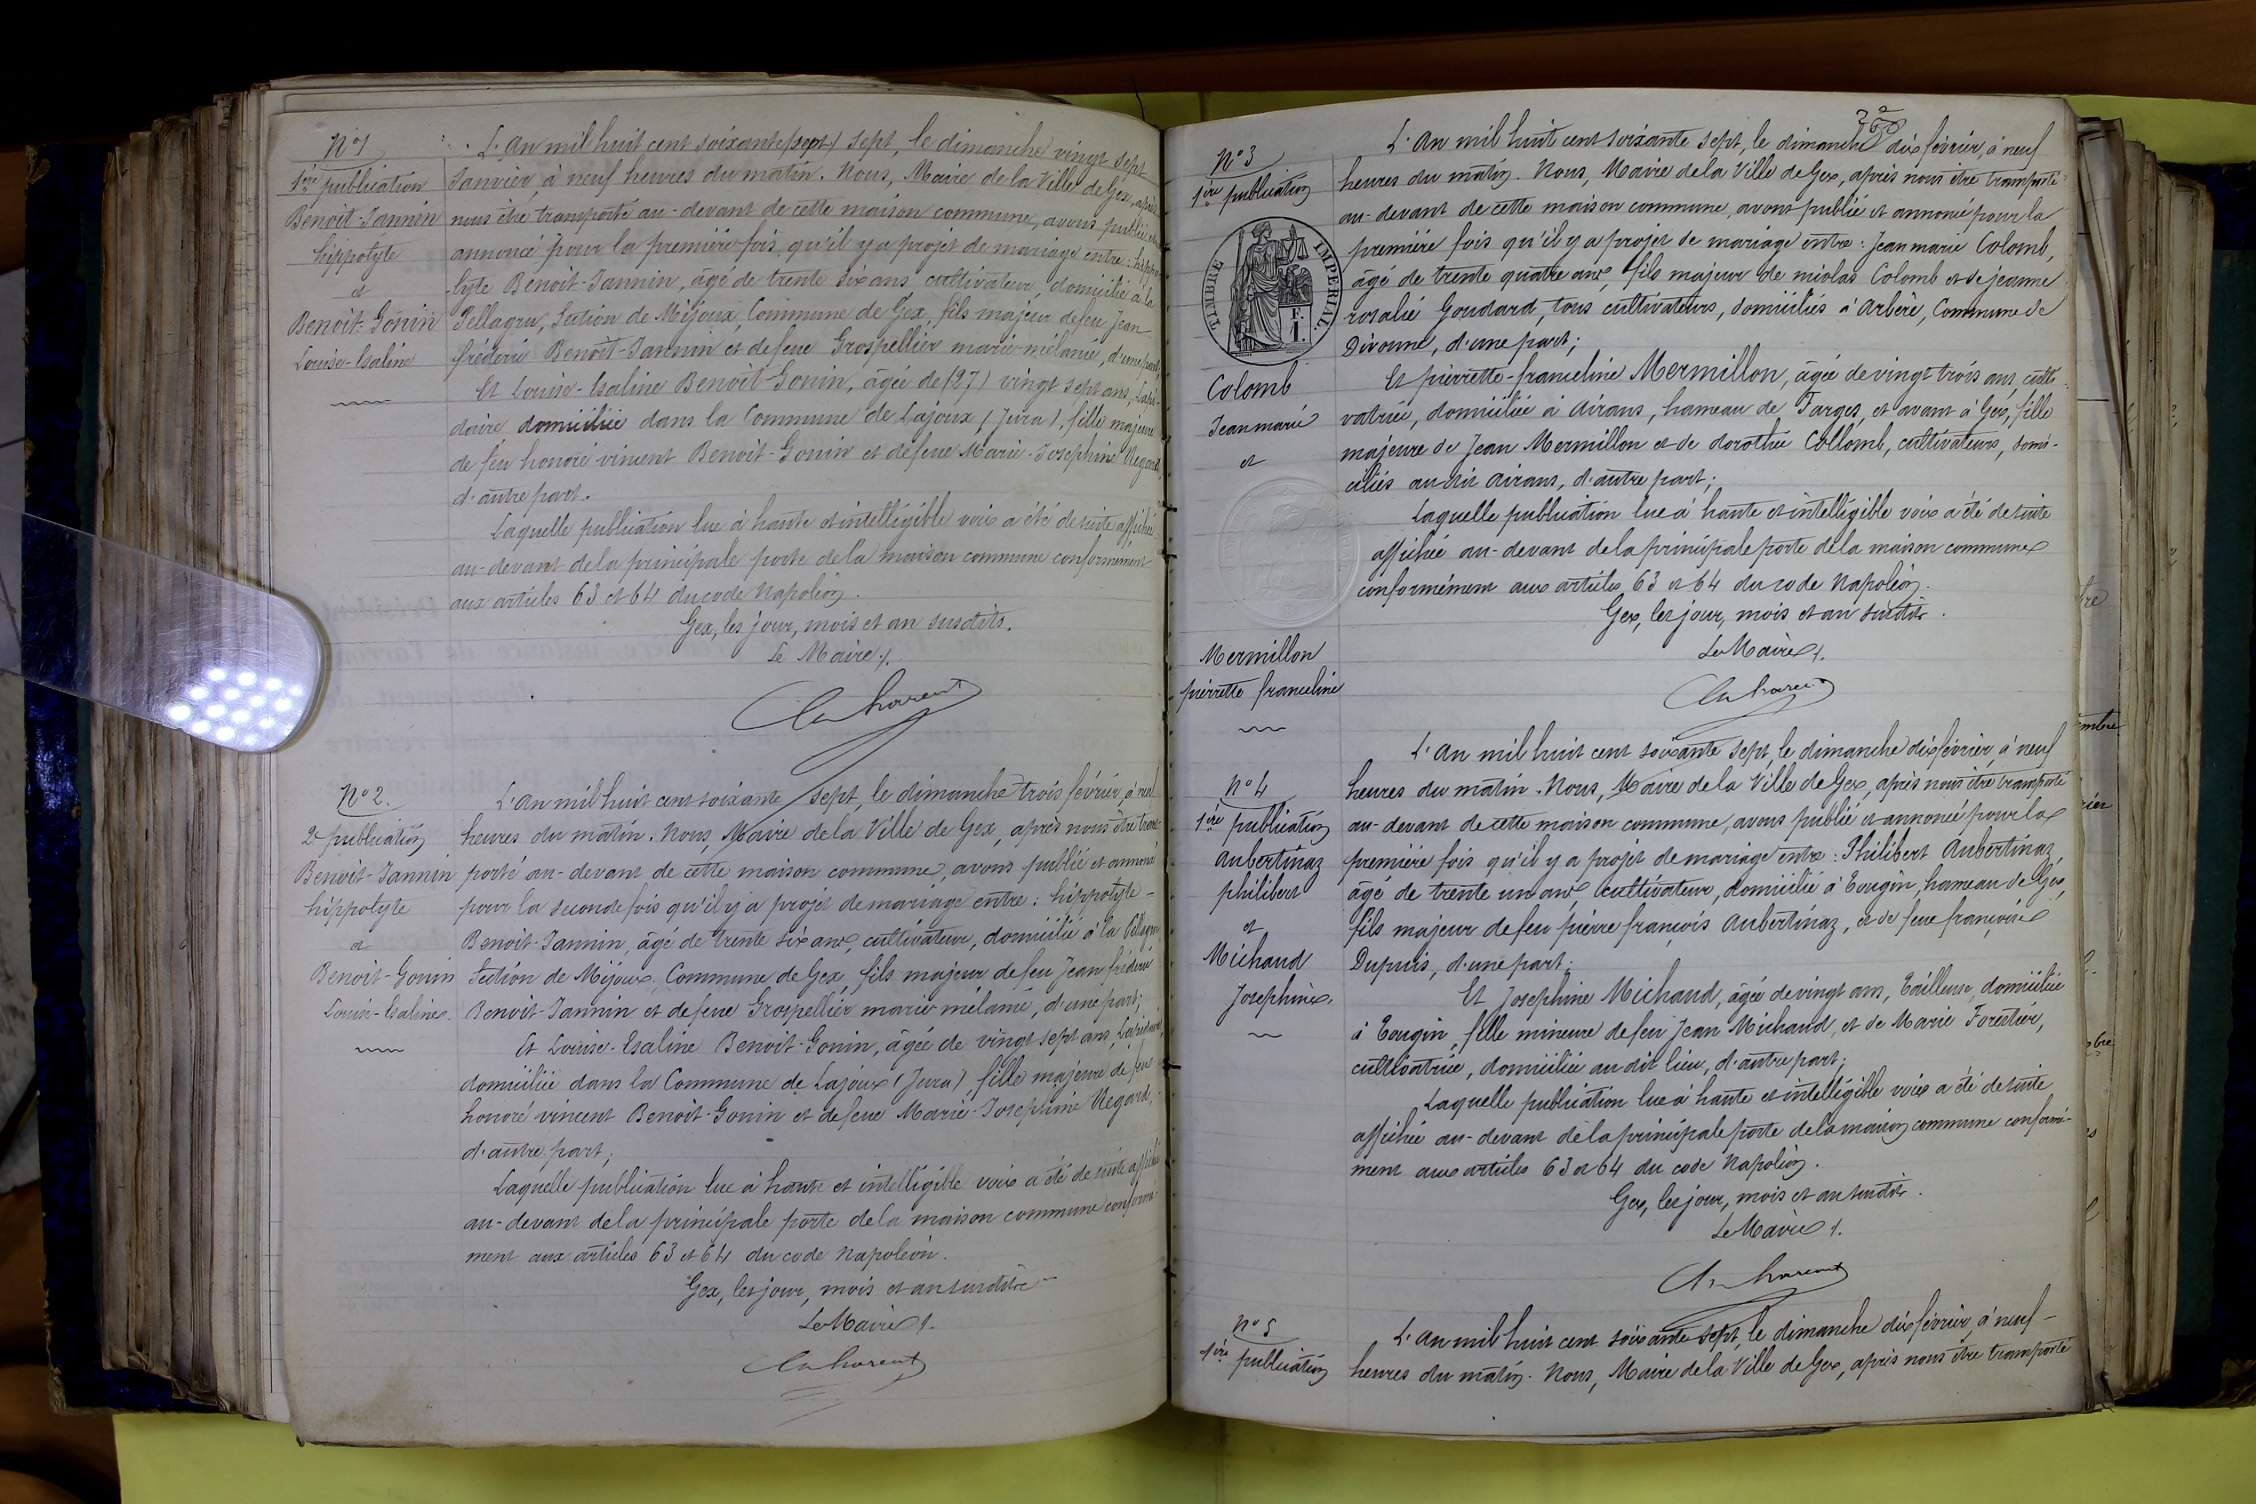 N°1
1ère publication
Benoit-Jannin
hippolyte
et
Benoit-Gonin
Louise-Esaline
L'An mil huit cent soixante (sept) sept, le dimanche vingt sept
Janvier, à neuf heures du matin. Nous, Maire de la Ville de Gex, après
nous être transporté au-devant de cette maison commune, avons publié et
annoncé pour la première fois qu'il y a projet de mariage entre : hippo-
lyte Benoit-Jannin, âgé de trente six ans cultivateur, domicilié à la
Pellagru, Section de Mijoux, Commune de Gex, fils majeur de feu Jean
fréderic Benoit-Jannin et de feue Grospellier marie-mélanie, d'une part
Et Louise-Esaline Benoit-Gonin, âgée de (27) vingt sept ans, Lapi-
daire, domiciliée dans la Commune de Lajoux (Jura), fille majeure
de feu honoré vincent Benoit-Gonin et de feue Marie-Josephine Regard,
d'autre part.
Laquelle publication lue à haute et intelligible voix a été de suite affichée
au-devant de la principale porte de la maison commune conformément
aux articles 63 et 64 du code Napoléon.
Gex, les jour, mois et an susdits.
Le Maire /.
N° 2.
2e publication
Benoit-Jannin
hippolyte
et
Benoit-Gonin
Louise-Esaline.
L'An mil huit cent soixante sept, le dimanche trois février, à neuf
heures du matin. Nous, Maire de la Ville de Gex, après nous être trans-
porté au-devant de cette maison commune, avons publié et annoncé
pour la seconde fois qu'il y a projet de mariage entre : hippolyte-
Benoit-Jannin, âgé de trente six ans, cultivateur, domicilié à la Pellagru
Section de Mijoux, Commune de Gex, fils majeur de feu Jean fréderic
Benoit-Jannin et de feue Grospellier marie mélanie, d'une part;
Et Louise-Esaline Benoit-Gonin, âgée de vingt sept ans, Lapidaire,
domiciliée dans la Commune de Lajoux (Jura), fille majeure de feu
honoré vincent Benoit-Gonin et de feue Marie-Josephine Regard,
d'autre part;
Laquelle publication lue à haute et intelligible voix a été de suite affichée
au-devant de la principale porte de la maison commune conformé-
ment aux articles 63 et 64 du code Napoléon.
Gex, les jour, mois et an susdits
Le Maire /.
N° 3
1ère publication
TIMBRE IMPERIAL
1 F.
Colomb
Jean marie
et
Mermillon
pierrette franceline
L'An mil huit cent soixante sept, le dimanche dix février, à neuf
heures du matin. Nous, Maire de la Ville de Gex, après nous être transporté
au-devant de cette maison commune, avons publié et annoncé pour la
première fois qu'il y a projet de mariage entre : Jean marie Colomb,
âgé de trente quatre ans, fils majeur de nicolas Colomb et de jeanne
rosalie Goudard, tous cultivateurs, domiciliés à Arbère, Commune de
Divonne, d'une part;
Et pierrette-franceline Mermillon, âgée de vingt trois ans, culti-
vatrice, domiciliée à Airans, hameau de Farges, et avant à Gex, fille
majeure de Jean Mermillon et de dorothée Collomb, cultivateurs, domi-
ciliés au dit Airans, d'autre part;
Laquelle publication lue à haute et intelligible voix a été de suite
affichée au-devant de la principale porte de la maison commune
conformément aux articles 63 et 64 du code Napoléon.
Gex, les jour, mois et an susdits.
Le Maire /.
N° 4
1ère publication
Aubertinaz
philibert
et
Michaud
Josephine.
L'An mil huit cent soixante sept, le dimanche dix février, à neuf
heures du matin. Nous, Maire de la Ville de Gex, après nous être transporté
au-devant de cette maison commune, avons publié et annoncé pour la
première fois qu'il y a projet de mariage entre : Philibert Aubertinaz,
âgé de trente un ans, cultivateur, domicilié à Tougin, hameau de Gex,
fils majeur de feu pierre françois Aubertinaz, et de feue françoise
Dupuis, d'une part;
Et Josephine Michaud, âgée de vingt ans, Tailleuse, domiciliée
à Tougin, fille mineure de feu Jean Michaud, et de Marie Forestier,
cultivatrice, domiciliée au dit lieu, d'autre part;
Laquelle publication lue à haute et intelligible voix a été de suite
affichée au-devant de la principale porte de la maison commune conformé-
ment aux articles 63 et 64 du code Napoléon.
Gex, les jour, mois et an susdits.
Le Maire /.
N° 5
1ère publication
L'An mil huit cent soixante sept, le dimanche dix février, à neuf-
heures du matin. Nous, Maire de la Ville de Gex, après nous être transporté